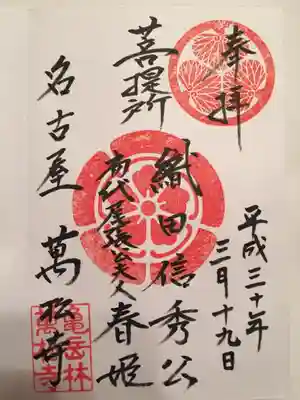 奉拝
平成三十年
三月十九日
菩提所
織田信秀公
初代尾張公夫人春姫
名古屋 萬松寺
亀岳林
萬松寺